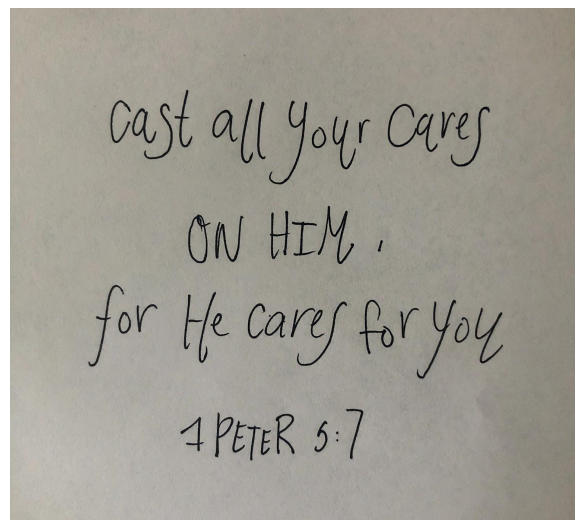 Cast all your Cares
ON HIM,
for He cares for you
1 PETER 5:7